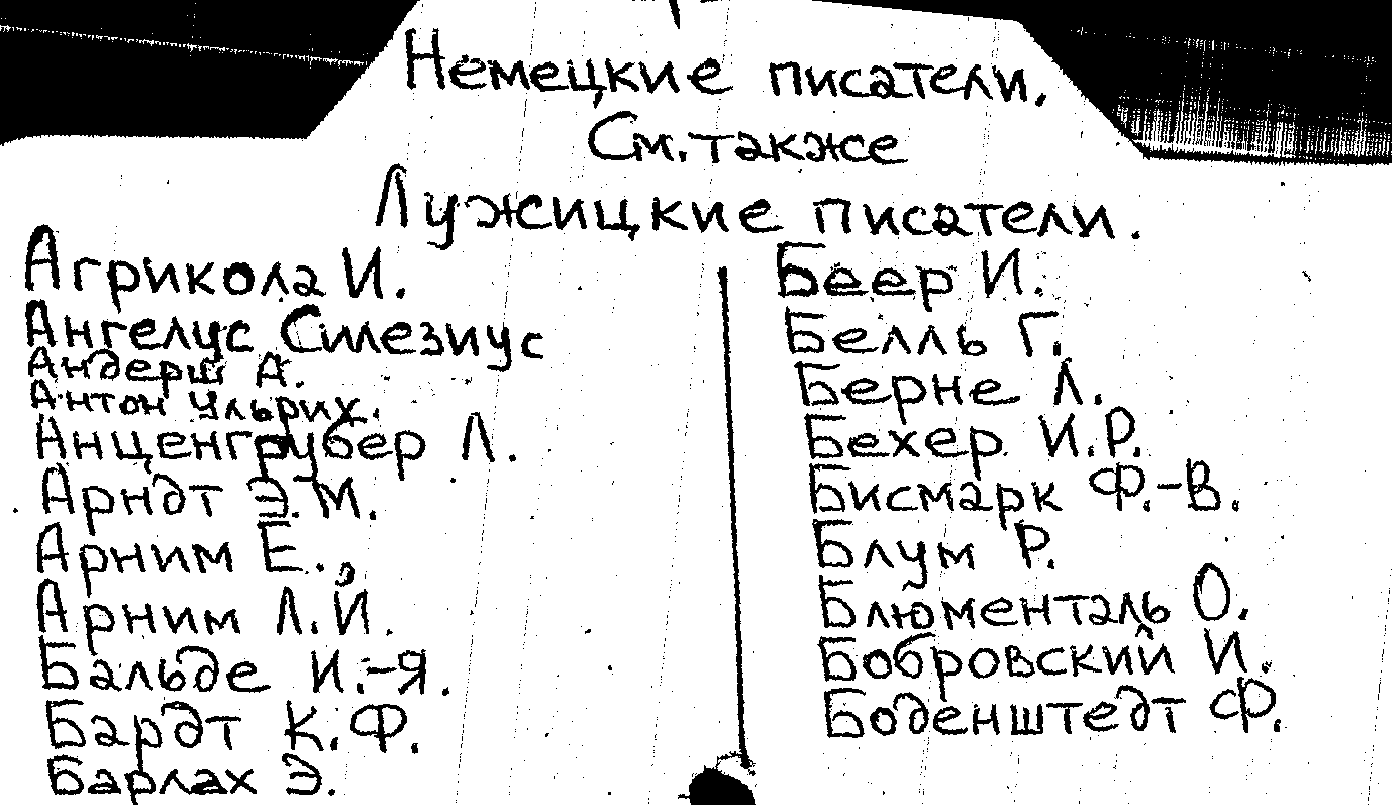 Немецкие писатели.
См. также
Лужицкие писатели.
Агрикола И.
Ангелус Силезиус
Андерш А.
Антон Ульрих.
Анценгрубер Л.
Арндт Э.М.
Арним Е.,
Арним Л.Й.
Бальде И.-Я.
Бардт К.Ф.
Барлах Э.
Беер И.
Белль Г.
Берне Л.
Бехер И.Р.
Бисмарк Ф.-В.
Блум Р.
Блюменталь О.
Бобровский И.
Боденштедт Ф.